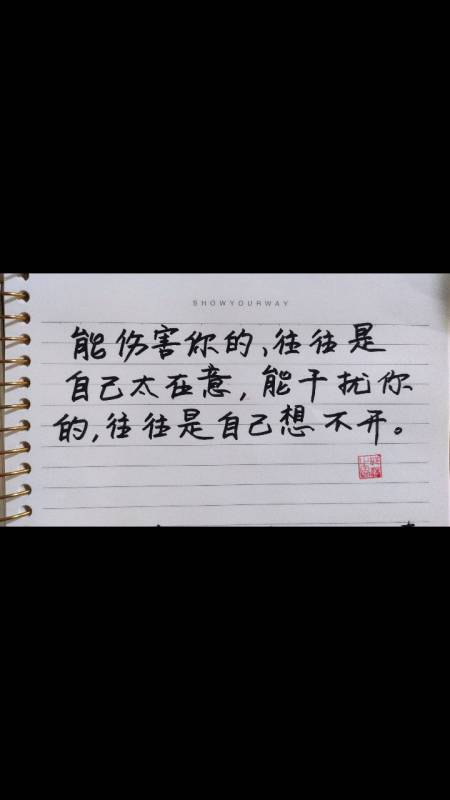 SHOWYOURWAY
能伤害你的,往往是
自己太在意,能干扰你
的,往往是自己想不开。